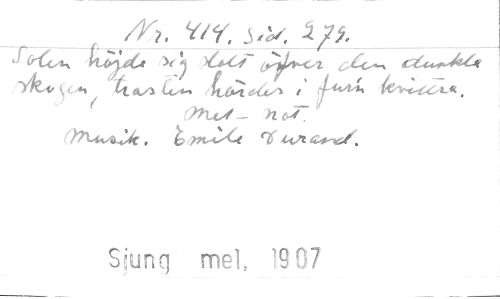 Nr. 414. Sid. 279.
Solen höjde sig stolt öfver den dunkla
skogen, trasten hördes i fur'n kvittra.
Med not.
Musik. Emile Durand.
Sjung mel. 1907